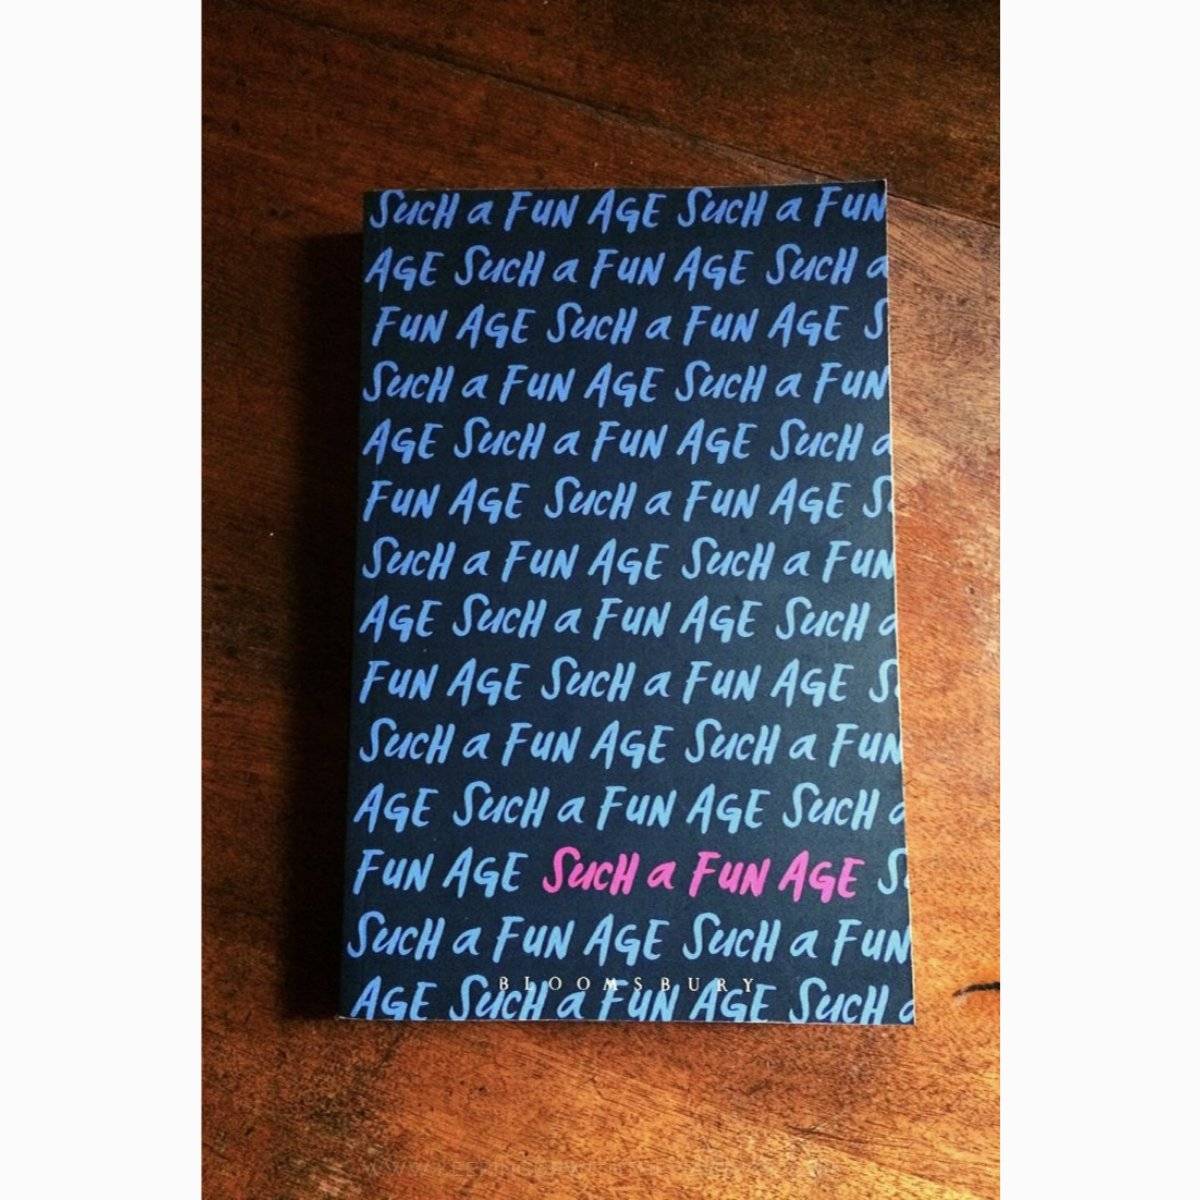 SUCH a FUN AGE SUCH a FUN
AGE SUCH a FUN AGE SUCH a
FUN AGE SUCH a FUN AGE S
SUCH a FUN AGE SUCH a FUN
AGE SUCH a FUN AGE SUCH a
FUN AGE SUCH a FUN AGE S
SUCH a FUN AGE SUCH a FUN
AGE SUCH a FUN AGE SUCH a
FUN AGE SUCH a FUN AGE S
SUCH a FUN AGE SUCH a FUN
AGE SUCH a FUN AGE SUCH a
FUN AGE SUCH a FUN AGE S
SUCH a FUN AGE SUCH a FUN
BLOOMSBURY
AGE SUCH a FUN AGE SUCH a